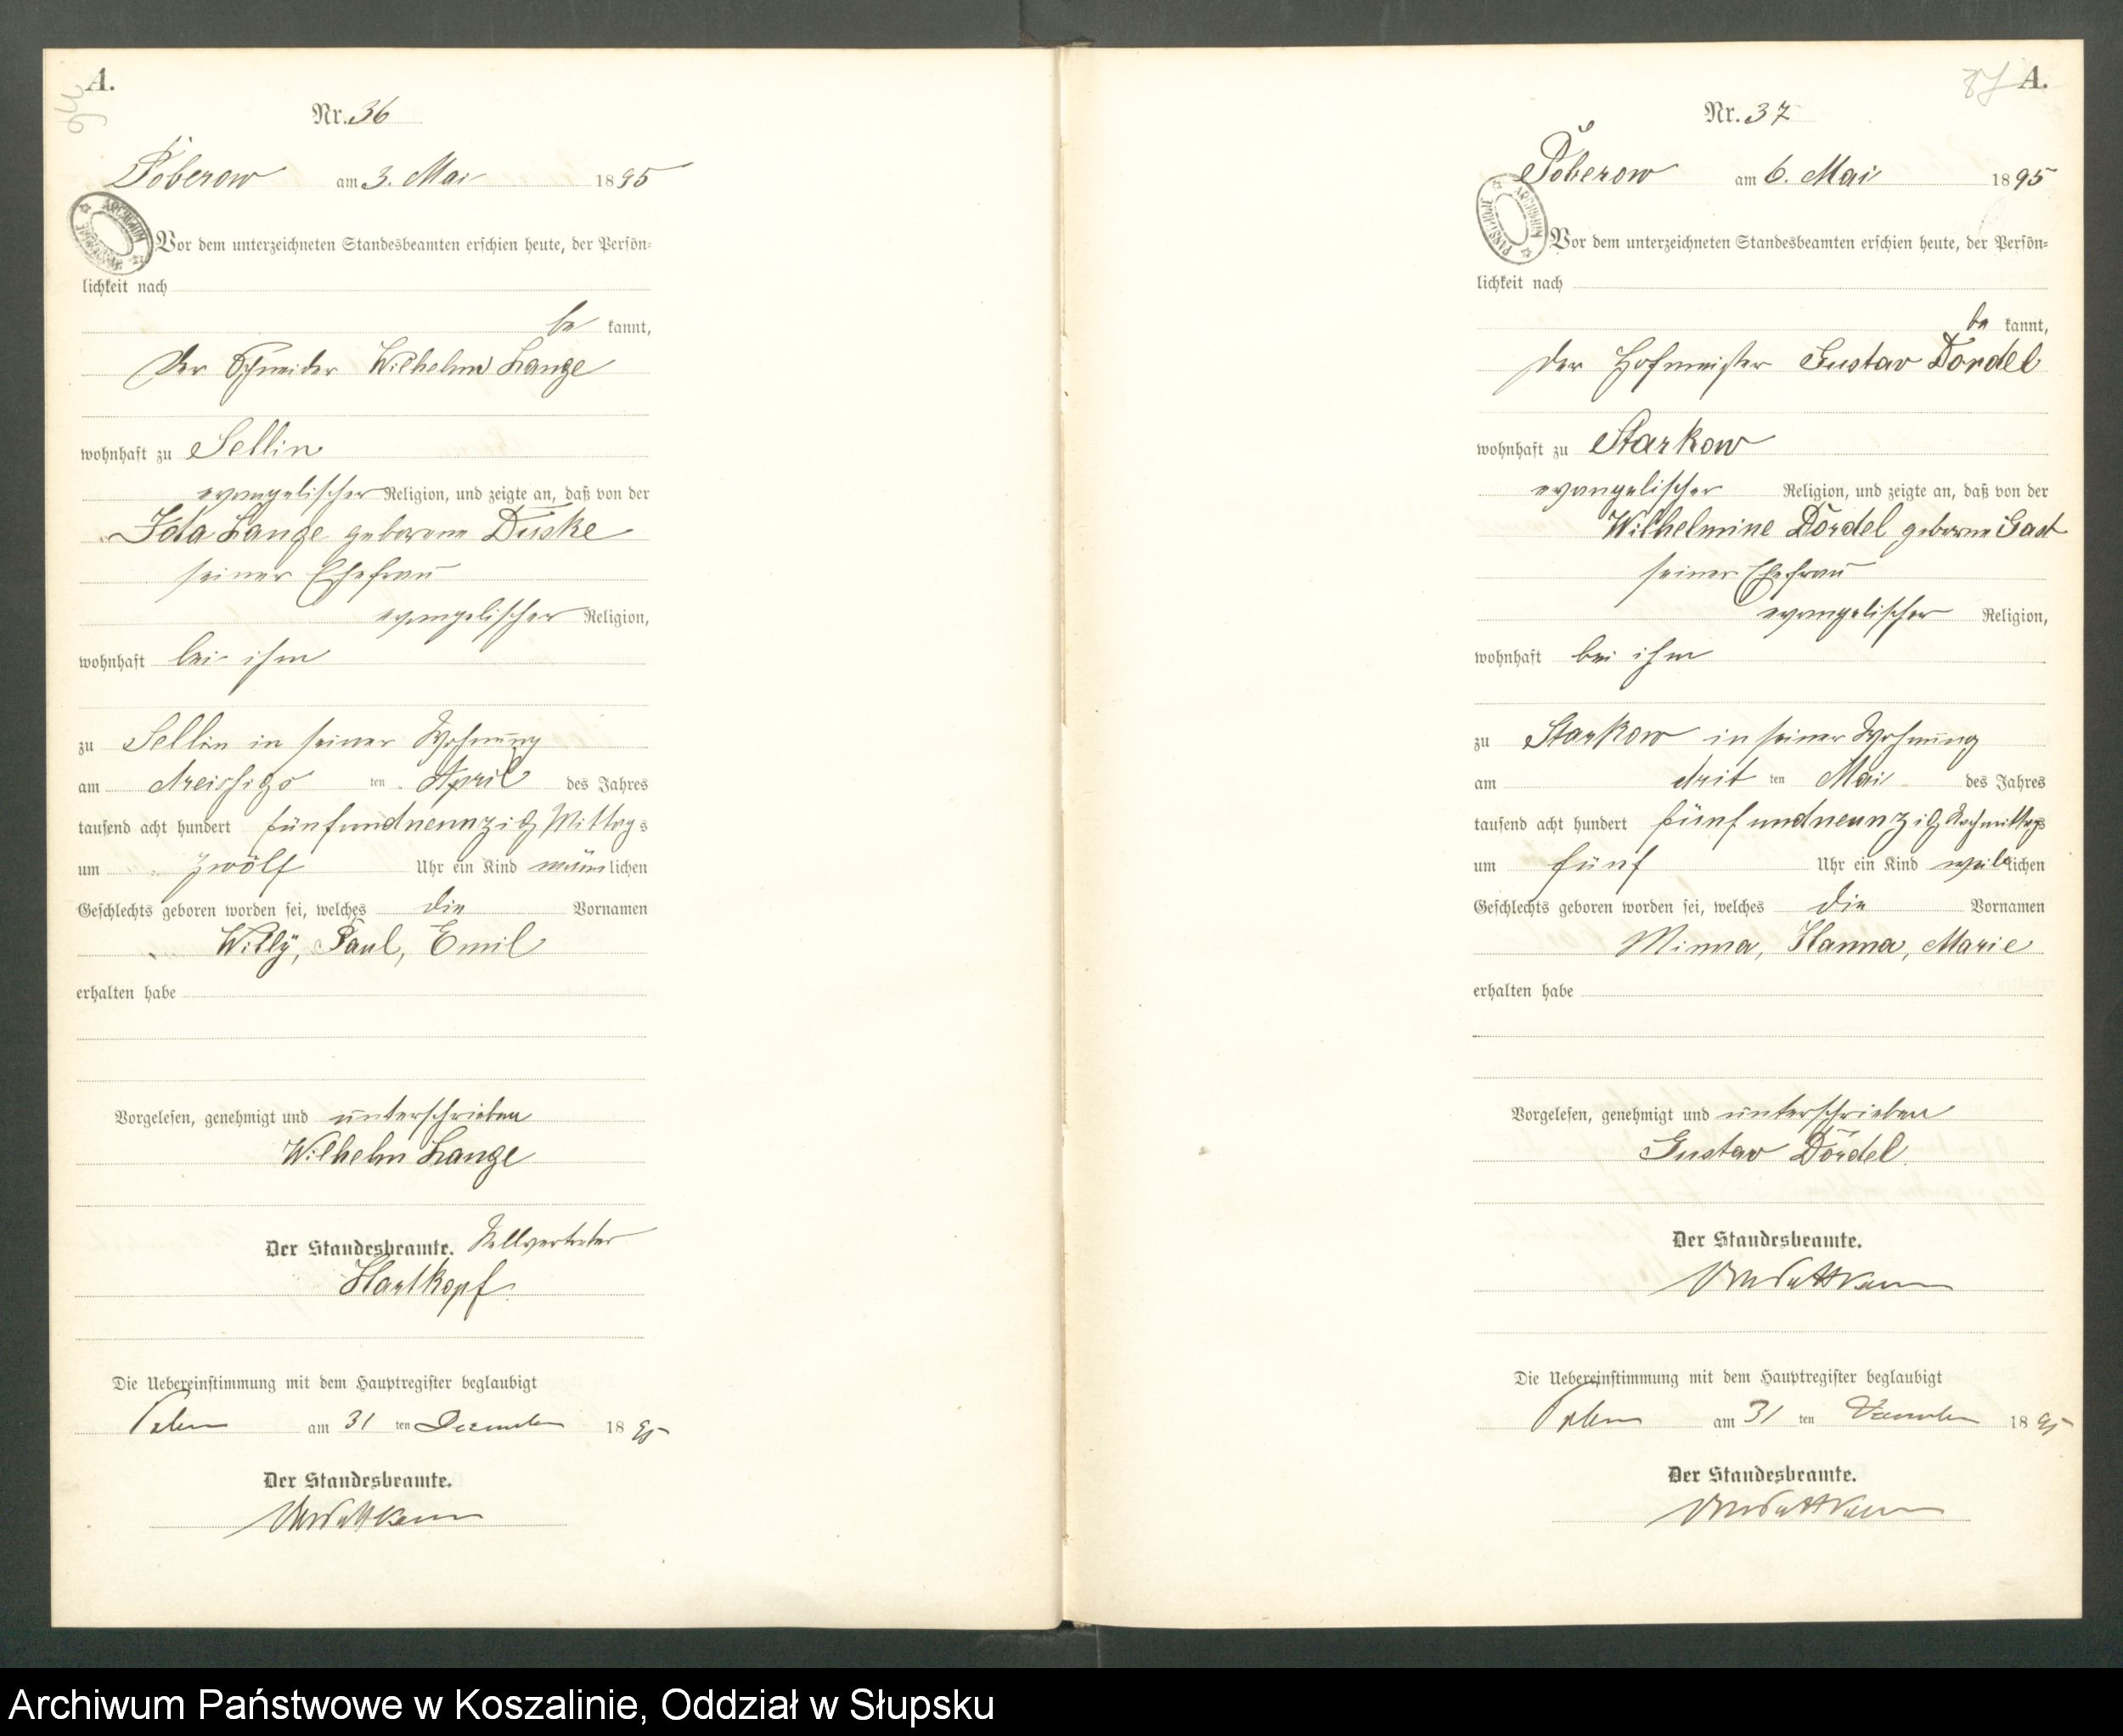 A.
Nr. 36
Poberow am 3. Mai 1895
Vor dem unterzeichneten Standesbeamten erschien heute, der Persön-
lichkeit nach
be kannt,
der Schneider Wilhelm Lange
wohnhaft zu Sellin
evangelischer Religion, und zeigte an, daß von der
Ida Lange geborene Duske
seiner Ehefrau
evangelischer Religion,
wohnhaft bei ihm
zu Sellin in seiner Wohnung
am dreissigs ten April des Jahres
tausend acht hundert fünfundneunzig Mittags
um zwölf Uhr ein Kind männlichen
Geschlechts geboren worden sei, welches die Vornamen
Willy, Paul, Emil
erhalten habe
Vorgelesen, genehmigt und unterschrieben
Wilhelm Lange
Der Standesbeamte. Stellvertreter
Hartkopf
Die Uebereinstimmung mit dem Hauptregister beglaubigt
am 31 ten December 1895
Der Standesbeamte.
A.
37
Nr. 37
Poberow am 6. Mai 1895
ARCHIWUM PAŃSTWOWE
Vor dem unterzeichneten Standesbeamten erschien heute, der Persön-
lichkeit nach
be kannt,
der Hofmeister Gustav Dördel
wohnhaft zu Starkow
evangelischer Religion, und zeigte an, daß von der
Wilhelmine Dördel geborne Gast
seiner Ehefrau
evangelischer Religion,
wohnhaft bei ihm
zu Starkow in seiner Wohnung
am drit ten Mai des Jahres
tausend acht hundert fünfundneunzig Nachmittags
um fünf Uhr ein Kind weiblichen
Geschlechts geboren worden sei, welches die Vornamen
Minna, Hanna, Marie
erhalten habe
Vorgelesen, genehmigt und unterschrieben
Gustav Dördel.
Der Standesbeamte.
Die Uebereinstimmung mit dem Hauptregister beglaubigt
am 31 ten December 1895
Der Standesbeamte.
Archiwum Państwowe w Koszalinie, Oddział w Słupsku